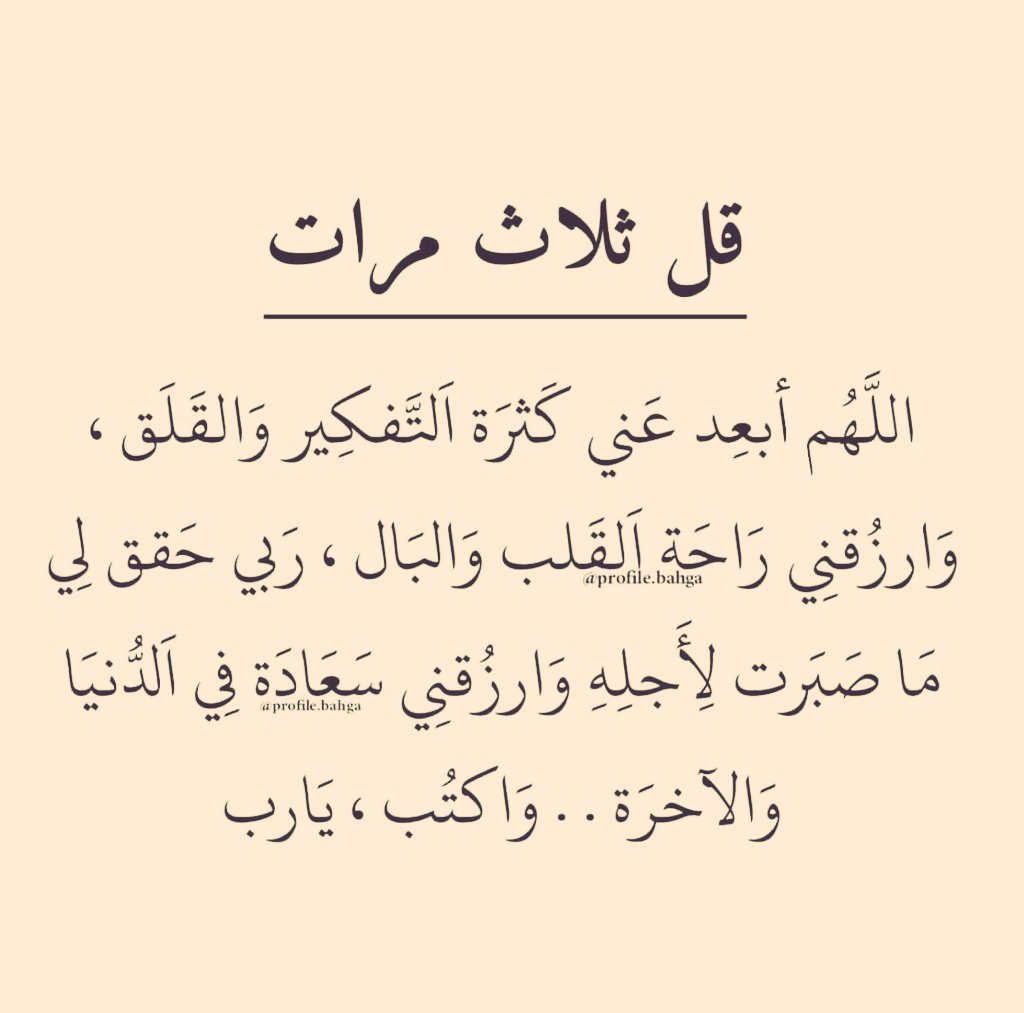 قل ثلاث مرات
اللَّهُم أبعِد عَني كَثرَة اَلتَّفكِير وَالقَلَق ،
وَارزُقنِي رَاحَة اَلقَلب وَالبَال ، رَبي حَقق لِي
@profile.bahga
مَا صَبَرت لِأَجلِهِ وَارزُقنِي سَعَادَة فِي اَلدُّنيَا
@profile.bahga
وَالآخرَة .. وَاكتُب ، يَارب